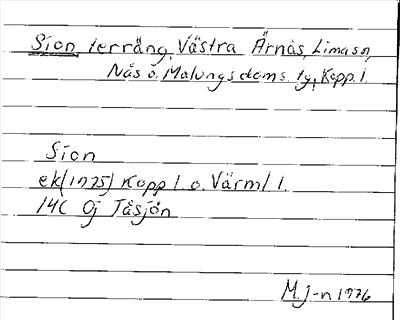 Sion, terräng, Västra Ärnäs, Lima sn,
Nås o. Malungs doms. tg, Kopp. l.
Sion
ek (1975) Kopp l. o. Värml l.
14C 0j Tåsjön
M. J-n 1976